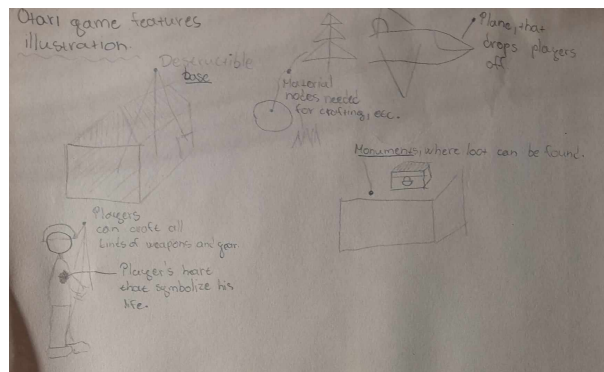 Otari game features
illustration
Destructible
base
Material
nodes needed
for crafting, etc.
Plane, that
drops players
off
Monuments, where loot can be found.
Players
can craft all
kinds of weapons and gear
Player's heart
that symbolize his
life.